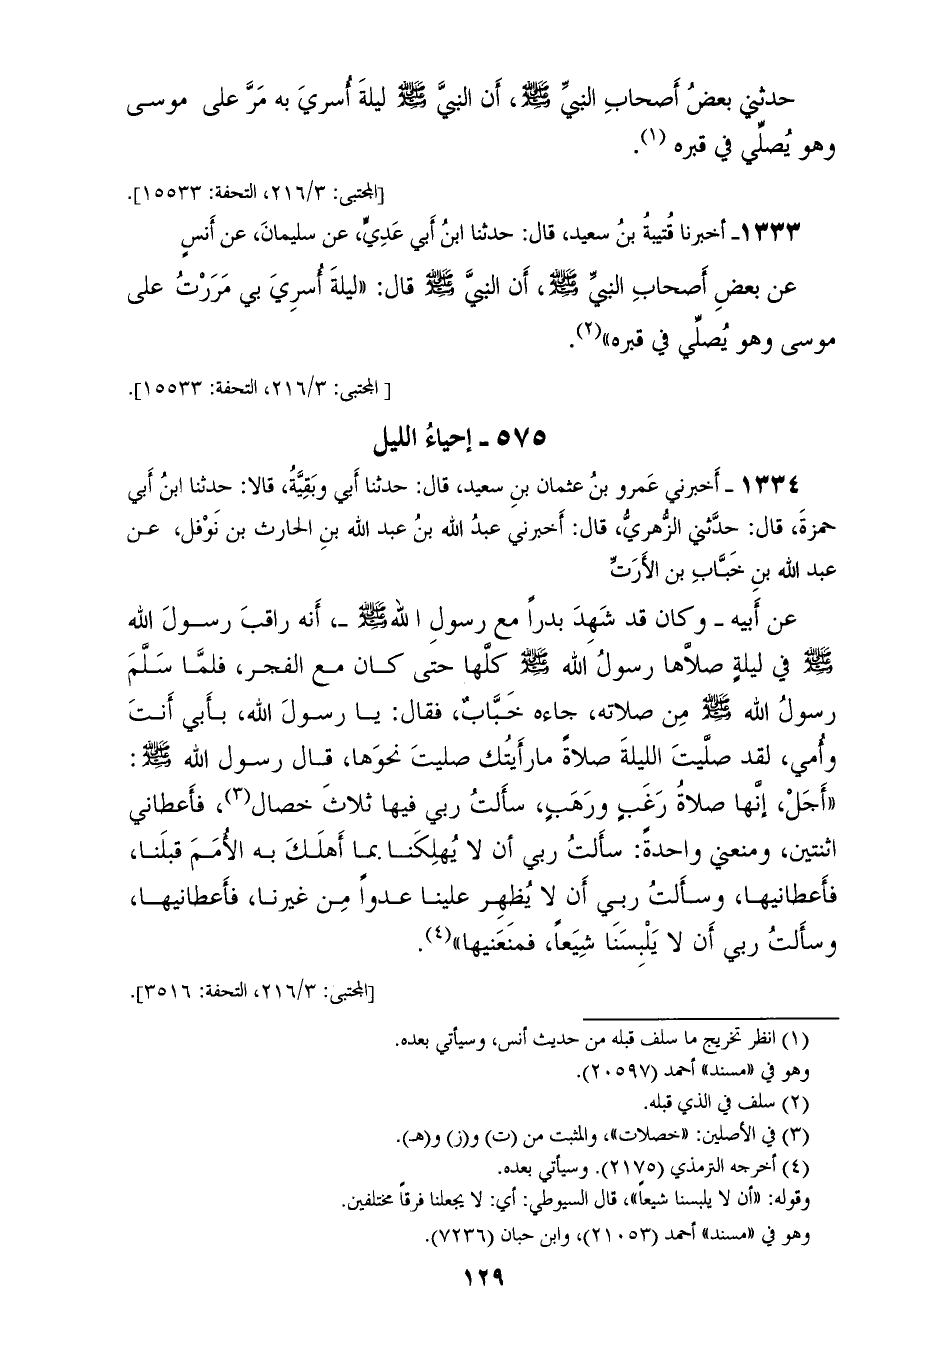 حدثني بعضُ أَصحابِ النبيِّ ﷺ، أَن النبيَّ ﷺ ليلةَ أُسريَ به مَرَّ على موسى
وهو يُصلِّي في قبره (١).
[المجتبى: ٢١٦/٣، التحفة: ١٥٥٣٣].
١٣٣٣ـ أخبرنا قُتيبةُ بنُ سعيد، قال: حدثنا ابنُ أَبي عَدِيٍّ، عن سليمانَ، عن أَنسٍ
عن بعضِ أَصحابِ النبيِّ ﷺ، أَن النبيَّ ﷺ قال: «ليلةَ أُسرِيَ بي مَرَرْتُ على
موسى وهو يُصلِّي في قبره»(٢).
[ المجتبى: ٢١٦/٣، التحفة: ١٥٥٣٣].
٥٧٥ ـ إحياءُ الليل
١٣٣٤ ـ أَخبرني عَمرو بنُ عثمان بنِ سعيد، قال: حدثنا أَبي وبَقِيَّةُ، قالا: حدثنا ابنُ أَبي
حمزةَ، قال: حدَّثني الزُّهريُّ، قال: أَخبرني عبدُ الله بنُ عبد الله بنِ الحارث بن نَوْفل، عـن
عبد الله بنِ خَبَّابِ بن الأَرَتِّ
عن أَبيه ـ وكان قد شَهِدَ بدراً مع رسولِ ا لله ﷺ ـ، أَنه راقبَ رسـولَ الله
ﷺ في ليلةٍ صلاَّها رسولُ الله ﷺ كلَّها حتى كـان مـع الفجـر، فلمَّـا سَـلَّمَ
رسولُ الله ﷺ مِن صلاته، جاءه خَبَّابٌ، فقال: يـا رسـولَ الله، بـأَبي أَنـتَ
وأُمي، لقد صلَّيتَ الليلةَ صلاةً مارأَيتُك صليتَ نحوَها، قـال رسـول الله ﷺ:
«أَجَلْ، إنَّها صلاةُ رَغَبٍ ورَهَبٍ، سأَلتُ ربي فيها ثلاثَ خصال(٣)، فأَعطاني
اثنتين، ومنعني واحدةً: سأَلتُ ربي أن لا يُهلِكَنـا بمـا أَهلَـكَ بـه الأُمَـمَ قبلَنـا،
فأَعطانيهـا، وسـأَلتُ ربـي أَن لا يُظهِـر علينـا عـدواً مِـن غيرنـا، فأَعطانيهـا،
وسأَلتُ ربي أَن لا يَلْبِسَنَا شِيَعاً، فمنَعَنيها»(٤).
[المجتبى: ٢١٦/٣، التحفة: ٣٥١٦].
(١) انظر تخريج ما سلف قبله من حديث أنس، وسيأتي بعده.
وهو في «مسند» أحمد (٢٠٥٩٧).
(٢) سلف في الذي قبله.
(٣) في الأصلين: «خصلات»، والمثبت من (ت) و(ز) و(هـ).
(٤) أخرجه الترمذي (٢١٧٥). وسيأتي بعده.
وقوله: «أن لا يلبسنا شيعاً»، قال السيوطي: أي: لا يجعلنا فرقاً مختلفين.
وهو في «مسند» أحمد (٢١٠٥٣)، وابن حبان (٧٢٣٦).
١٢٩